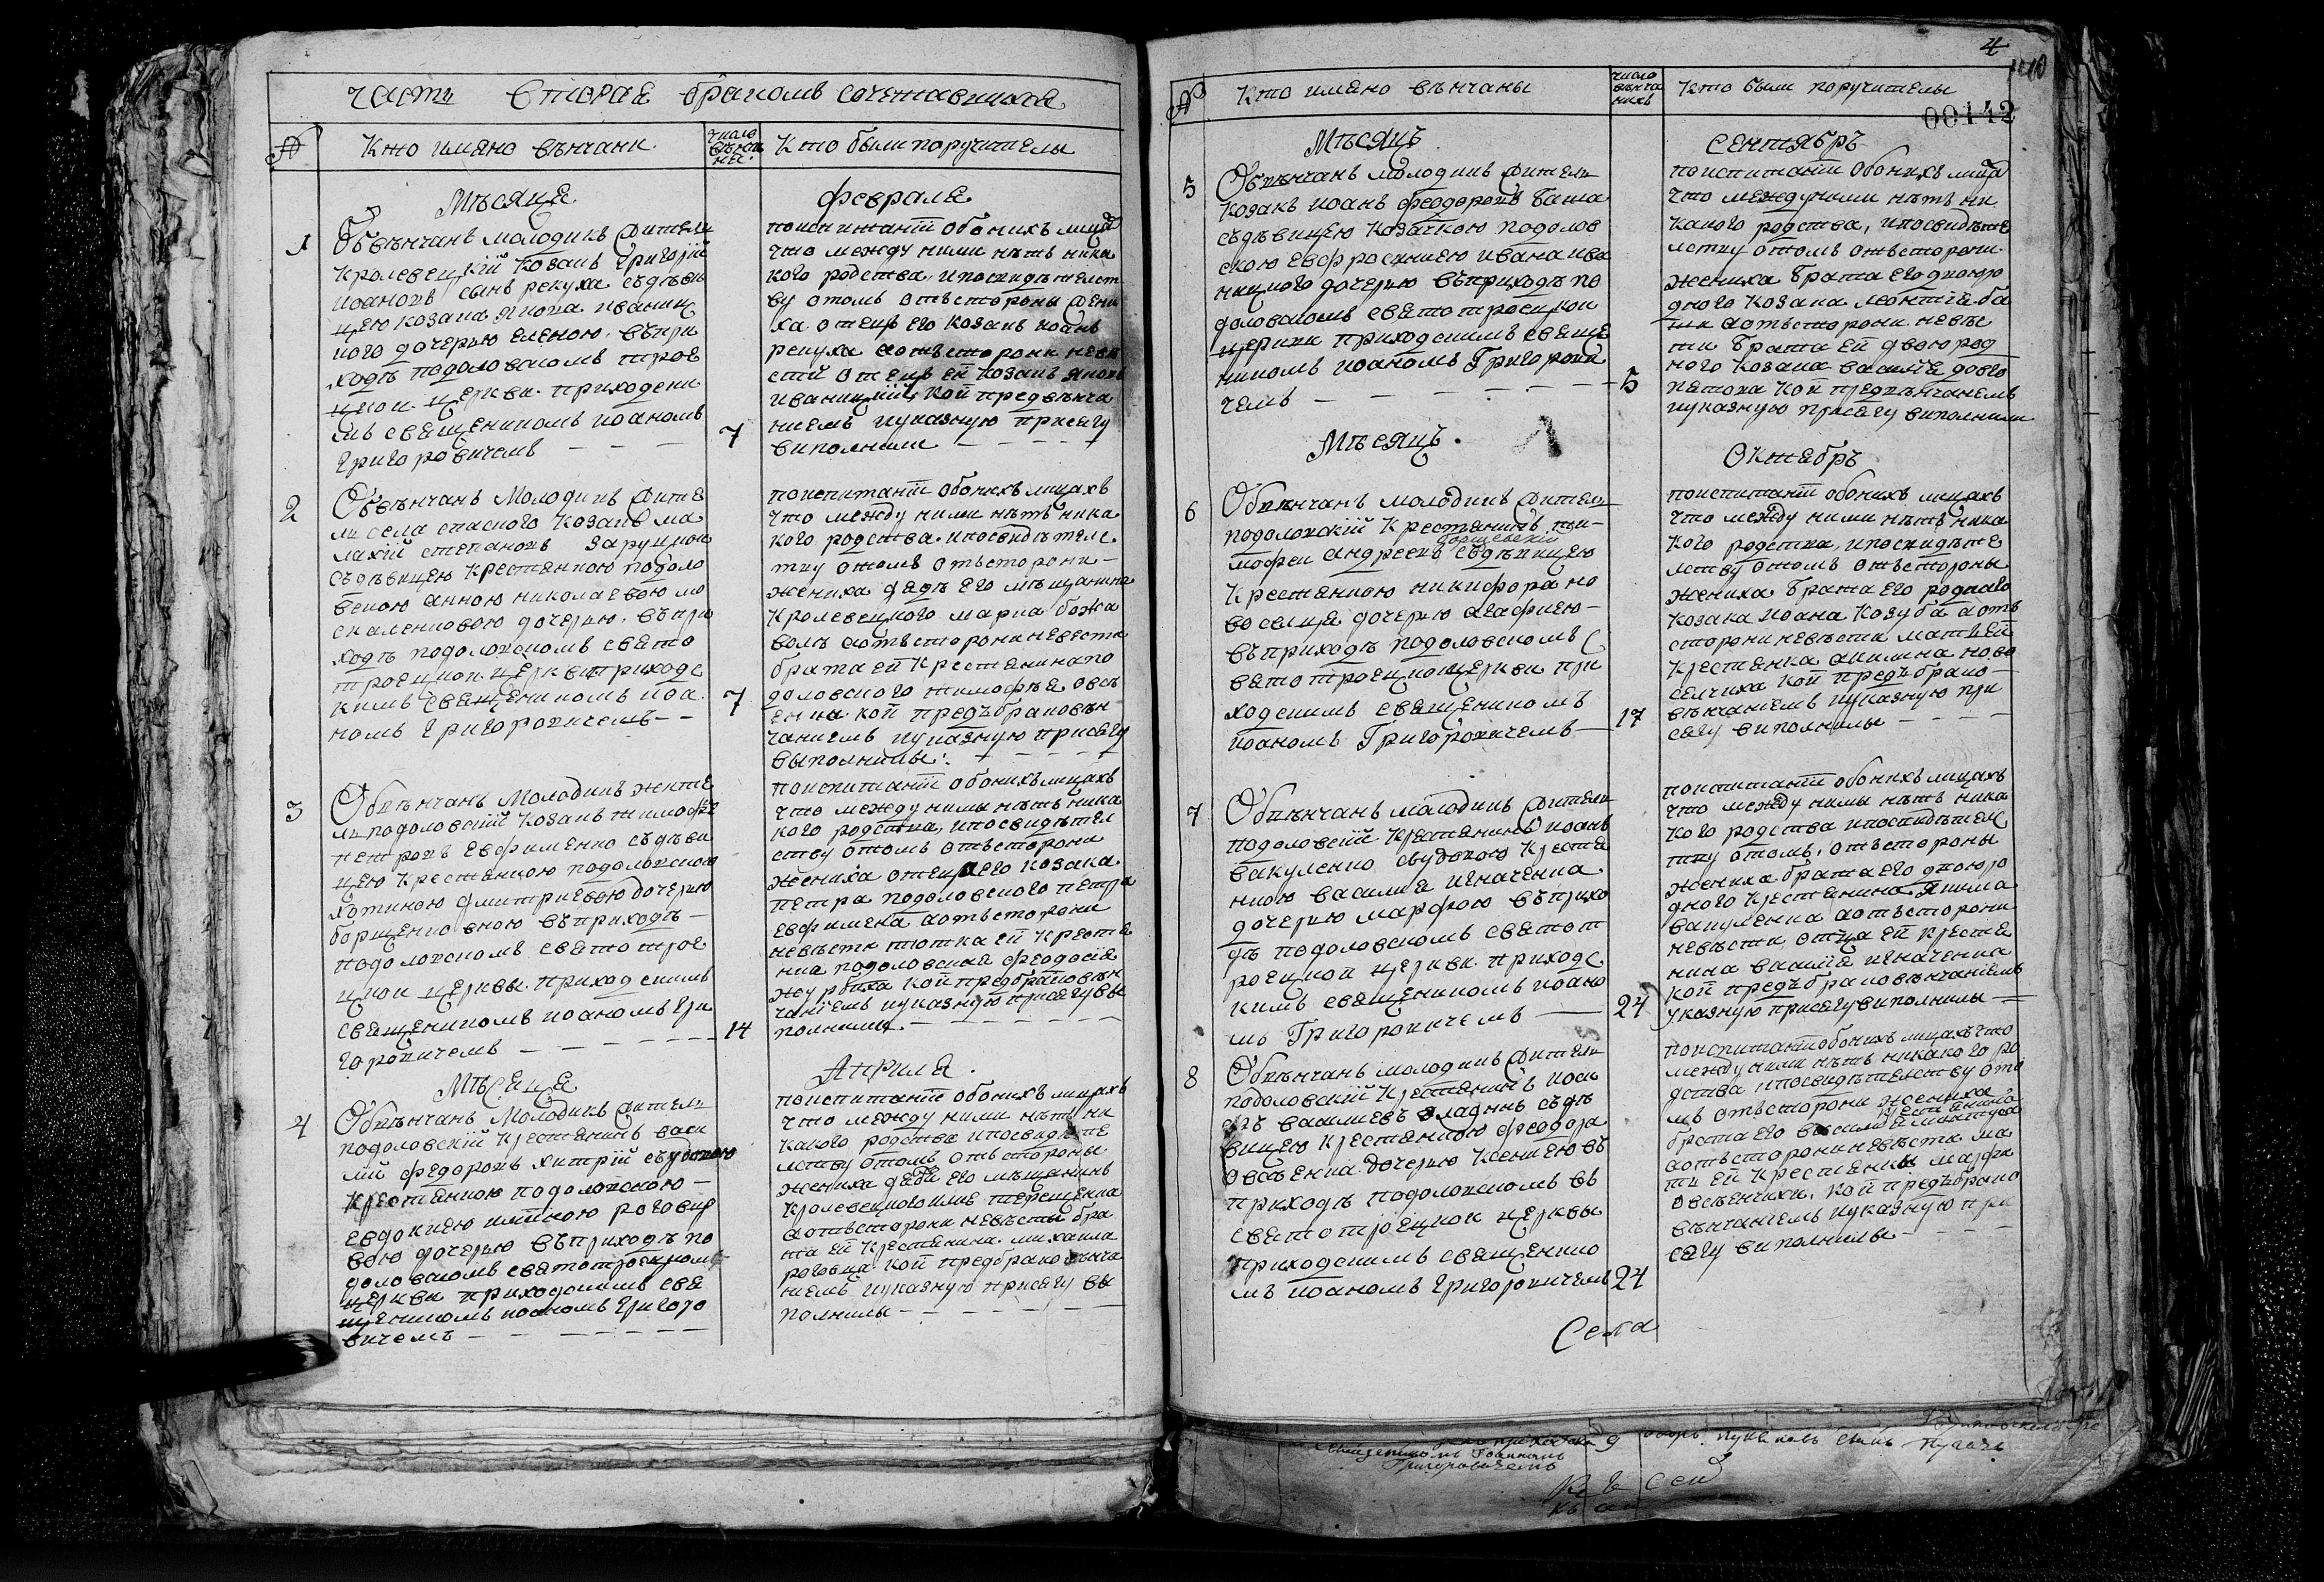 Часть вторая браком сочетавшихся
№
Кто имяно вѣнчани
число вѣнчанiя
Кто были поручители
Мѣсяца
февраля
1
Обвѣнчанъ молодикъ жители
кролевецкiй козакъ григорiй
иоановъ сынъ репуха съдѣви
цею козака якова иваниц
кого дочерью еленою въпри
ходѣ подоловскомъ трое
цкой церкви приходски
мъ священикомъ иоаномъ
григоровичемъ
7
поиспитанiи обоихъ лицахъ
что между ними нѣтъ ника
кого родства, ипосвидѣтелст
ву отомъ отъстороны жени
ха отецъ его козакъ иоанъ
репуха аотъсторони неви
стй отецъ ей козакъ яковъ
иваницкiй, кой предвѣнча
нiемъ иуказную присягу
виполнили
2
Обвѣнчанъ Молодикъ жите
ли села спаского козакъ ма
лахiй степановъ заруцкои
съдѣвицею крестянкою подоло
вскою анною николаевою мо
скаленковою дочерью. въпри
ходѣ подоловскомъ свято
троецкои церквѣ приходс
кимъ священикомъ иоа
номъ григоровичемъ
7
поиспитанiи обоихъ лицахъ
что между ними нѣтъ ника
кого родства. ипосвидѣтелс
тву отомъ отъсторони
жениха дядъ его мѣщанинъ
кролевецкого марка божа
волъ аотъсторони невести
брата ей крестянина по
доловского тимофѣя овсѣ
енка кой предъбраковѣн
чанiемъ иуказную присягу
выполнилы
3
Обвѣнчанъ Молодикъ жите
ли подоловскiй козакъ тимофѣй
петровъ ефименко съдѣви
цею крестянкою подоловскою
хотиною дмитриевою дочерью
борщенковною въприходѣ
подоловскомъ святотрое
цкои церквы приходскимъ
священикомъ иоаномъ гри
горовичемъ
14
поиспитанiи обоихълицахъ
что между нимы нѣтъ ника
кого родства, ипосвидѣтел
ству отомъ отъсторони
жениха отецъ его козака
петра подоловского петра
евфименка аотъсторони
невѣсти тютка ей крестя
нка подоловская феодосiя
журбиха кой предбраковѣн
чанiемъ иуказную присягу вы
полнили
Мѣсяца
Априля
4
Обвѣнчанъ Молодикъ жители
подоловскiй крестянинъ васи
лiй федоровъ хитрiй съудовою
крестянкою подоловскою
евдокиею иллiною роговце
вою дочерью въприходѣ по
доловскомъ святотроецкомъ
церкви приходскимъ свя
щеникомъ иоаномъ григоро
вичемъ
поиспитанiи обоихъ лицахъ
что между ними нѣтъ ни
какого родства ипосвидѣте
лству отомъ отъстороны
жениха дядя его мѣщанинъ
кролевецкого илiе терещенка
аотъсторони невѣсты бра
та ей крестянина михаила
роговца кой предбраковѣнча
нiемъ иуказную присягу вы
полнилы
4
00142
№
Кто имяно вѣнчаны
число вѣнчанихъ
Кто были поручителы
Мѣсяцъ
Сентябръ
5
Обвѣнчанъ молодикъ жители
козакъ иоанъ феодоровъ баша
съдѣвицею козачкою подолов
скою евфросиниею ивана ива
ницкого дочерью въприходѣ по
доловскомъ святотроецкои
церкви приходскимъ свяще
никомъ иоаномъ григорови
чемъ
5
поиспитанiи обоихъ лица
что междуними нѣтъ ни
какого родства, ипосвидѣте
лству отомъ отъсторони
жениха брата его двоюро
дного козака леонтiй ба
ши аотъсторони невѣс
ти брата ей двоюрод
ного козака василiя довго
петова кой предвѣнчанемъ
иуказную присягу виполнили
Мѣсяцъ
Октябръ
6
Обвѣнчанъ молодикъ жители
подоловскiй крестянинъ ти
мофеи андреевъ борщевскiй съдѣвицею
крестянкою никифора но
воселца дочерью агафиею
въприходѣ подоловскомъ с
вятотроецкоцеркви при
ходскимъ священикомъ
иоаномъ Григоровичемъ
17
поиспитанiи обоихъ лицахъ
что между ними нѣтъ ника
кого родства, ипосвидѣте
лству отомъ отъстороны
жениха брата его родного
козака иоана козуба аотъ
сторони невѣсти мать ей
крестянка акилина ново
селчиха кой предъбрако
вѣнчанiемъ иуказную при
сягу виполнилы
7
Обвѣнчанъ молодикъ жители
подоловскiй крестянинъ иоанъ
вакуленко свудовою крестя
нкою василия игначенка
дочерью марфою въприхо
дѣ подоловскомъ святот
роецкой церкви приходс
кимъ священикомъ иоано
мъ Григоровичемъ
24
поиспитанiи обоихъ лицахъ
что между нимы нѣтъ ника
кого родства ипосвидѣтелс
тву отомъ, отъстороны
жениха брата его двоюро
дного крестянина якима
вакуленка аотъсторони
невѣсти отца ей крестя
нина василiя игначенка
кой предъбраковѣнчанiемъ
указную присягу виполнилы
8
Обвѣнчанъ молодикъ жители
подоловскiй крестянинъ иоси
фъ василиевъ оладинъ съдѣ
вицею крестянкою феодора
овсѣенка дочерью ксениею въ
приходѣ подоловскомъ въ
святотроецкои церквы
приходскимъ священико
мъ иоаномъ григоровичемъ
24
поиспитанiи обоихъ лицахъ что
между ними нѣтъ никакого ро
дства ипосвидѣтелству ото
мъ отъсторони жениха
брата его василия крестянина
аотъсторони невѣсти ма
ти ей крестянки марфи
овсѣенчихи, кой предъбрако
вѣнчанiемъ иуказную при
сягу виполнилы
Села
священикомъ Iоанномъ
Григоровичемъ
9